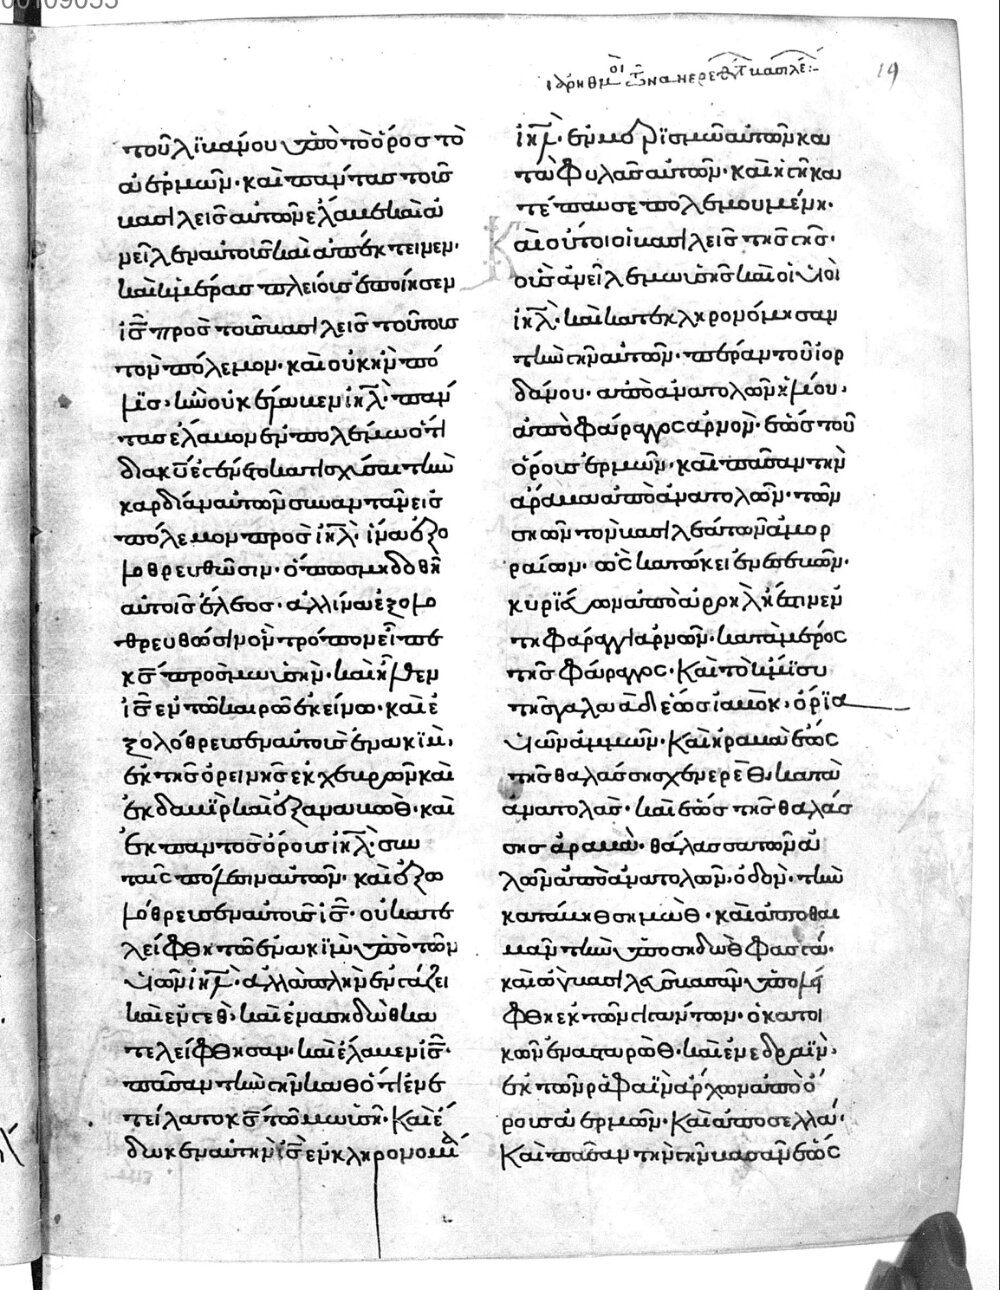 ιδ ἀρηθμοὶ τῶν ἀνερεθέντ βασιλέ:-
19
τοῦ λϊβάνου ὑπὸ τὸ ὄρος τὸ
ἀερμών· καὶ πάντας τοὺς
βασιλεῖς αὐτῶν ἔλαβε καὶ ἀ
νεῖλεν αὐτοὺς καὶ ἀπέκτεινεν·
καὶ ἡμέρας πλείους ἐποίησεν
ἰς̅ πρὸς τοὺς βασιλεῖς τούτους
τὸν πόλεμον· καὶ οὐκ ἦν πό
λϊς, ἣν οὐκ ἔλαβεν ἰη̅λ· πάν
τας ἔλαβον ἐν πολέμω ὅτι
διὰ κ̅υ ἐγένετο κατισχύσαι τὴν
καρδίαν αὐτῶν συναντᾶν εἰς
πόλεμον πρὸς ἰη̅λ· ἵνα ἐξο
λοθρευθῶσιν· ὅπως μὴ δοθῆ
αὐτοῖς ἔλεος· ἀλλ ἵνα ἐξολο
θρευθῶσιν ὃν τρόπον εἶπε
κ̅ς πρὸς μωυσῆν· καὶ ἦλθεν
ἰς̅ ἐν τῶ καιρῶ ἐκείνω· καὶ ἐ
ξολόθρευσεν αὐτοὺς ἐνακὶμ,
ἐκ τῆς ὀρεινῆς ἐκ χεβρῶν καὶ
ἐκ δαβὶρ καὶ ἐξ αναβωθ· καὶ
ἐκ παντὸς ὄρους ἰη̅λ· σὺν
ταῖς πόλεσιν αὐτῶν· καὶ ἐξω
λόθρευσεν αὐτοὺς ἰς̅· οὐ κατε
λείφθη τῶ ἐνακὶμ ὑπὸ τῶν
υἱῶν ἰη̅λ· ἀλλὰ πλὴν ἐν γάζει
καὶ ἐν γεθ, καὶ ἐν ασηδὼθ κα
τελείφθησαν· καὶ ἔλαβεν ἰς̅·
πᾶσαν τὴν γῆν καθότι ἐνε
τείλατο κ̅ς τῶ μωυσῆ· Καὶ ἔ
δωκεν αὐτὴν ἰς̅ ἐν κληρονομία
ἰη̅λ· ἐν μερϊσμῶ αὐτῶν κατὰ
τὰς φυλὰς αὐτῶν· καὶ ἡ γῆ κα
τέπαυσε πολεμουμένη·
Καὶ οὗτοι οἱ βασιλεῖς τῆς γῆς·
οὓς ἀνεῖλε μωυσῆς καὶ οἱ υἱοὶ
ἰη̅λ· καὶ κατεκληρονόμησαν
τὴν γῆν αὐτῶν· πέραν τοῦ ἰορ
δάνου· ἀπὸ ἀνατολῶν ἡλίου,
ἀπὸ φάραγγος ἀρνὸν· ἕως τοῦ
ὄρους ἀερμών· καὶ πᾶσαν τὴν
ἄραβα ἀπὸ ἀνατολῶν· τὸν
σηὼν τὸν βασιλέα τῶν ἀμορ
ραίων· ὃς κατώκει ἐν ἐσεβών·
κυρϊεύων ἀπὸ ἀροὴλ ἥ ἐστιν ἐν
τῆ φάραγγι ἀρνῶν· κατὰ μέρος
τῆς φάραγγος· Καὶ τὸ ἥμϊσυ
τῆς γαλαὰδ ἕως ἰαβὸκ, ὅρϊα
υἱῶν ἀμμών· Καὶ ἡ ραβὰ ἕως
τῆς θαλάσσης χενερὲθ, κατὰ
ἀνατολὰς· καὶ ἕως τῆς θαλάσ
σης ἀραβὰ· θάλασσα τῶν ἁ
λῶν ἀπὸ ἀνατολῶν· ὁδὸν· τὴν
κατὰ ησημὼθ· καὶ ἀπὸ θαι
μὰν τὴν ὑπὸ σηδὼθ φασγά·
καὶ ὢγ βασιλεὺς βασὰν ὑπελή
φθη ἐκ τῶν γιγάντων· ὁ κατοι
κῶν ἐν ασταρὼθ· καὶ ἐν εδραΐν·
ἐκ τῶν ραφαῒν ἄρχων ἀπὸ ὄ
ρους ἀερμών· Καὶ ἀπὸ σελχαΐ·
Καὶ πᾶσαν τὴν γῆν βασὰν ἕως